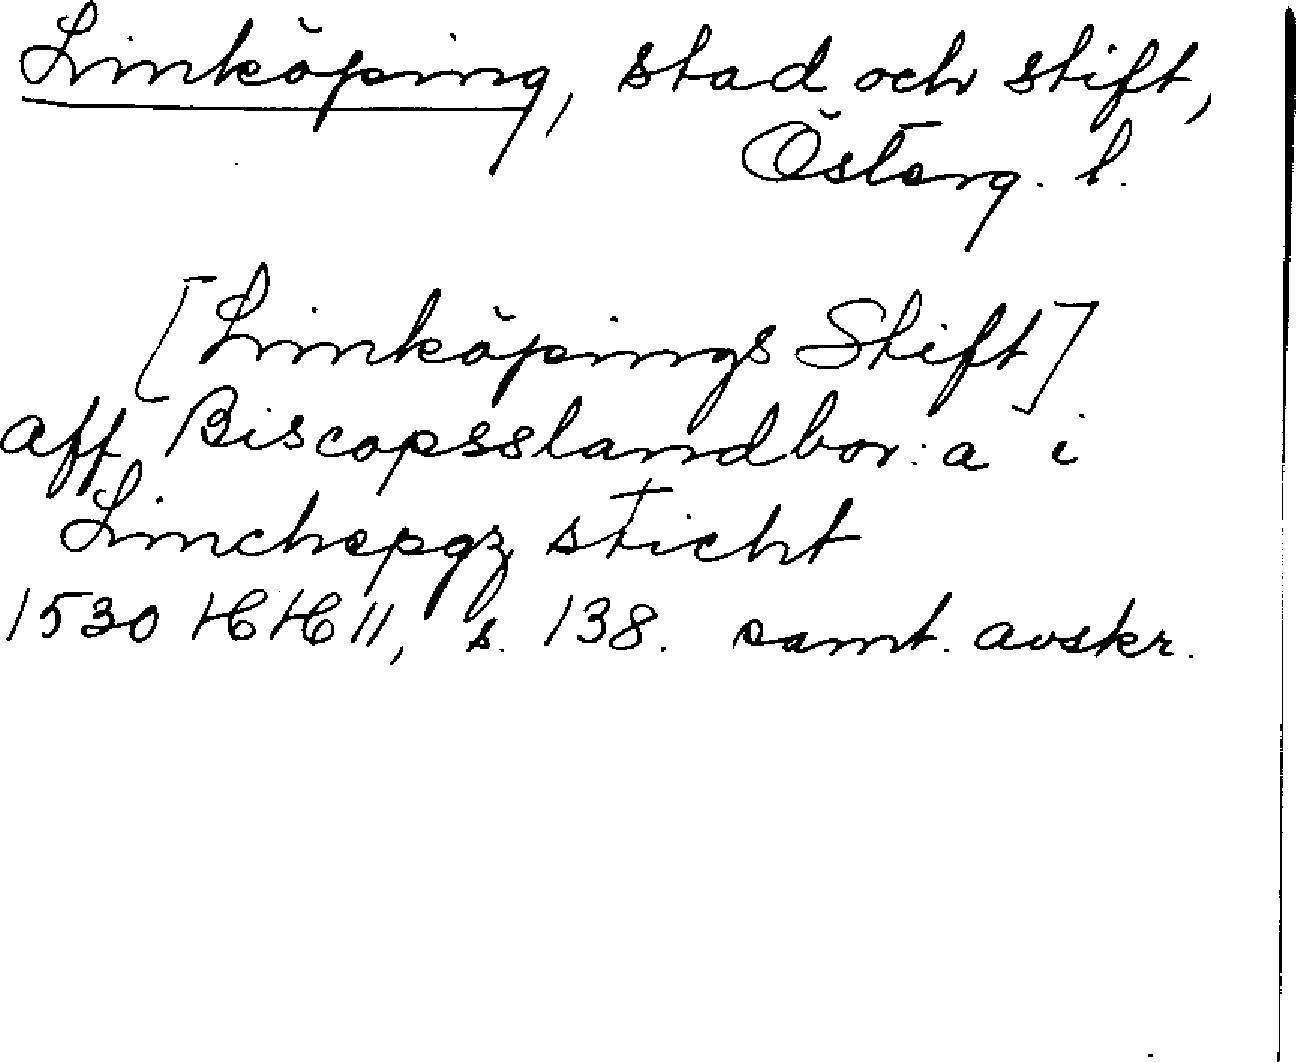 Linköping, stad och stift,
Österg. l.
[Linköpings Stift]
aff Biscopsslandbor: a i
Linchepgz sticht
1530 HH 11, s. 138. samt. avskr.